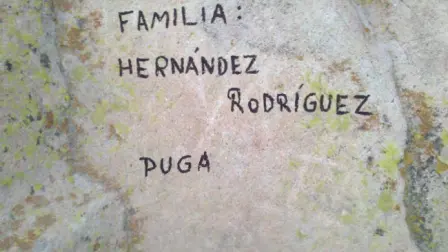 FAMILIA:
HERNÁNDEZ
RODRÍGUEZ
PUGA